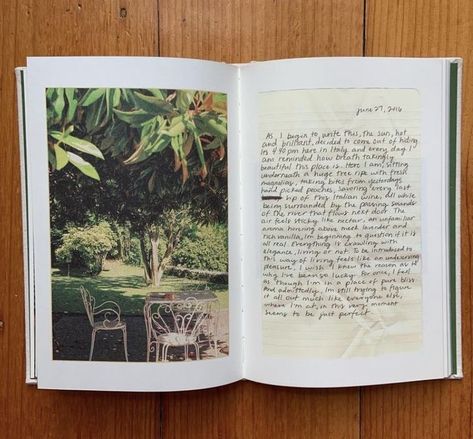 june 27, 2016
As I begin to write this, the sun, hot
and brilliant, decided to come out of hiding.
Its 4:40 pm here in Italy and every day I
am reminded how breath takingly
beautiful this place is. Here I am, sitting
underneath a huge tree ripe with fresh
magnolias, taking bites from yesterdays
hand picked peaches, savoring every last
sip of this Italian wine, all while
being surrounded by the passing sounds
of the river that flows next door. The
air feels sticky like nectar, an unfamiliar
aroma hovering above meek lavender and
rich vanilla, I'm beginning to question if it is
all real. Everything is crawling with
elegance, living or not. To be introduced to
this way of living feels like an undeserving
pleasure, I wish I knew the reason as to
why I've been so lucky. For once, I feel
as though I'm in a place of pure bliss.
And admittedly, I'm still trying to figure
it all out much like everyone else,
where I'm at, in this very moment
seems to be just perfect.